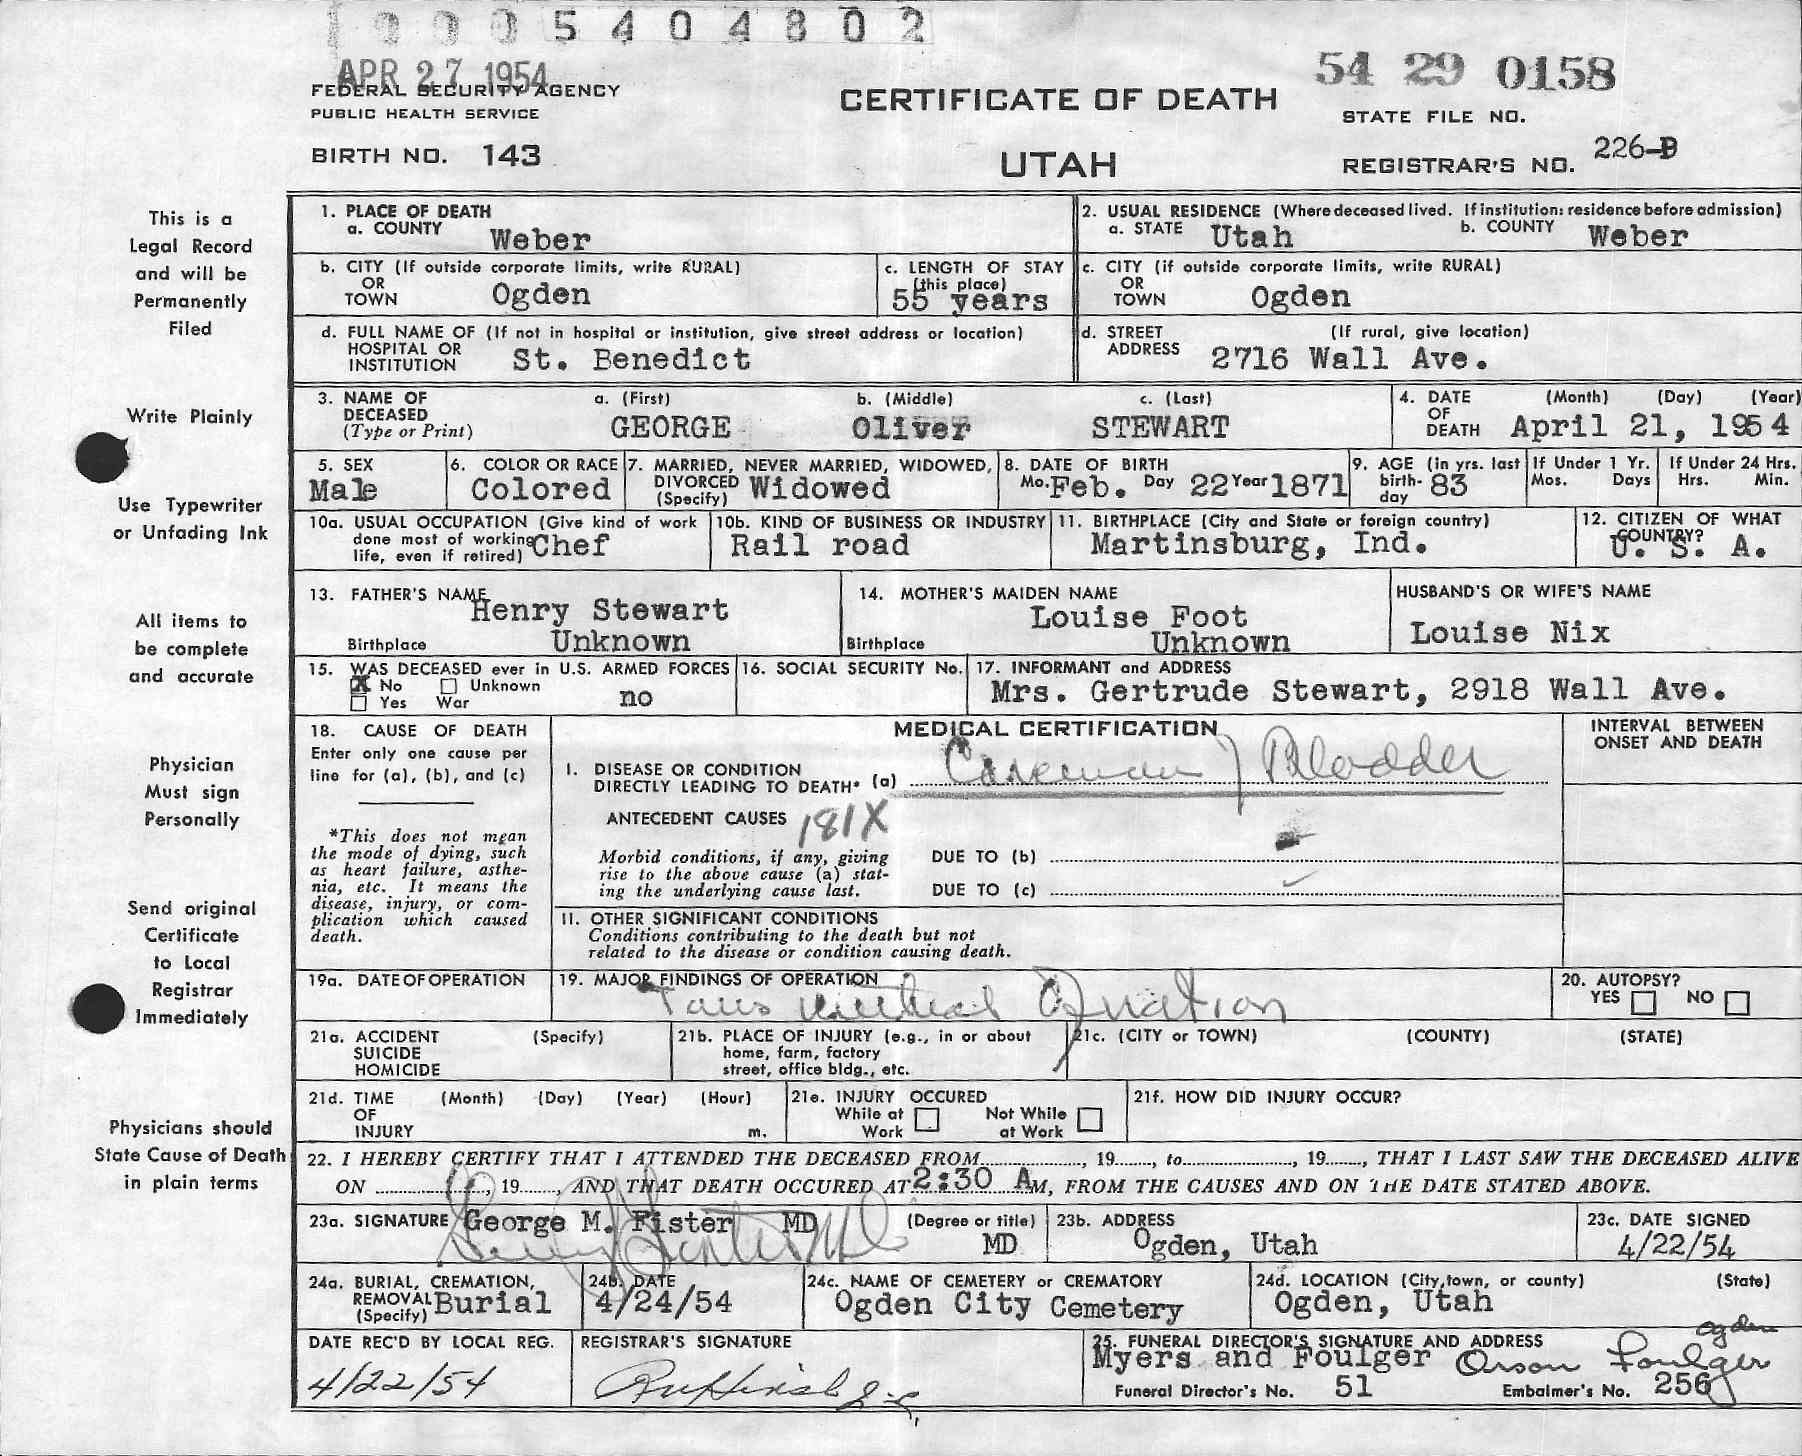 1 0 0 0 5 4 0 4 8 0 2
APR 27 1954
54 29 0158
FEDERAL SECURITY AGENCY
PUBLIC HEALTH SERVICE
CERTIFICATE OF DEATH
STATE FILE NO.
BIRTH NO. 143
UTAH
REGISTRAR'S NO. 226-B
This is a
Legal Record
and will be
Permanently
Filed
Write Plainly
Use Typewriter
or Unfading Ink
All items to
be complete
and accurate
Physician
Must sign
Personally
Send original
Certificate
to Local
Registrar
Immediately
Physicians should
State Cause of Death
in plain terms
1. PLACE OF DEATH
a. COUNTY Weber
2. USUAL RESIDENCE (Where deceased lived. If institution: residence before admission)
a. STATE Utah b. COUNTY Weber
b. CITY (If outside corporate limits, write RURAL)
OR
TOWN Ogden
c. LENGTH OF STAY
(this place)
55 years
c. CITY (if outside corporate limits, write RURAL)
OR
TOWN Ogden
d. FULL NAME OF (If not in hospital or institution, give street address or location)
HOSPITAL OR
INSTITUTION St. Benedict
d. STREET (If rural, give location)
ADDRESS 2716 Wall Ave.
3. NAME OF a. (First) b. (Middle) c. (Last)
DECEASED
(Type or Print) GEORGE Oliver STEWART
4. DATE (Month) (Day) (Year)
OF
DEATH April 21, 1954
5. SEX
Male
6. COLOR OR RACE
Colored
7. MARRIED, NEVER MARRIED, WIDOWED,
DIVORCED
(Specify) Widowed
8. DATE OF BIRTH
Mo. Feb. Day 22 Year 1871
9. AGE (in yrs. last
birth-
day 83
If Under 1 Yr.
Mos. Days
If Under 24 Hrs.
Hrs. Min.
10a. USUAL OCCUPATION (Give kind of work
done most of working
life, even if retired) Chef
10b. KIND OF BUSINESS OR INDUSTRY
Rail road
11. BIRTHPLACE (City and State or foreign country)
Martinsburg, Ind.
12. CITIZEN OF WHAT
COUNTRY?
U. S. A.
13. FATHER'S NAME
Henry Stewart
Birthplace Unknown
14. MOTHER'S MAIDEN NAME
Louise Foot
Birthplace Unknown
HUSBAND'S OR WIFE'S NAME
Louise Nix
15. WAS DECEASED ever in U.S. ARMED FORCES
X No Unknown
Yes War no
16. SOCIAL SECURITY No.
17. INFORMANT and ADDRESS
Mrs. Gertrude Stewart, 2918 Wall Ave.
18. CAUSE OF DEATH
Enter only one cause per
line for (a), (b), and (c)
*This does not mean
the mode of dying, such
as heart failure, asthe-
nia, etc. It means the
disease, injury, or com-
plication which caused
death.
MEDICAL CERTIFICATION
INTERVAL BETWEEN
ONSET AND DEATH
I. DISEASE OR CONDITION
DIRECTLY LEADING TO DEATH* (a) Bladder
ANTECEDENT CAUSES 181X
Morbid conditions, if any, giving
rise to the above cause (a) stat-
ing the underlying cause last.
DUE TO (b)
DUE TO (c)
II. OTHER SIGNIFICANT CONDITIONS
Conditions contributing to the death but not
related to the disease or condition causing death.
19a. DATE OF OPERATION
19. MAJOR FINDINGS OF OPERATION
20. AUTOPSY?
YES NO
21a. ACCIDENT (Specify)
SUICIDE
HOMICIDE
21b. PLACE OF INJURY (e.g., in or about
home, farm, factory
street, office bldg., etc.
21c. (CITY or TOWN) (COUNTY) (STATE)
21d. TIME (Month) (Day) (Year) (Hour)
OF
INJURY m.
21e. INJURY OCCURED
While at Not While
Work at Work
21f. HOW DID INJURY OCCUR?
22. I HEREBY CERTIFY THAT I ATTENDED THE DECEASED FROM , 19 , to , 19 , THAT I LAST SAW THE DECEASED ALIVE
ON , 19 , AND THAT DEATH OCCURED AT 2:30 AM, FROM THE CAUSES AND ON THE DATE STATED ABOVE.
23a. SIGNATURE George M. Fister MD (Degree or title)
MD
23b. ADDRESS
Ogden, Utah
23c. DATE SIGNED
4/22/54
24a. BURIAL, CREMATION,
REMOVAL
(Specify) Burial
24b. DATE
4/24/54
24c. NAME OF CEMETERY or CREMATORY
Ogden City Cemetery
24d. LOCATION (City, town, or county) (State)
Ogden, Utah
DATE REC'D BY LOCAL REG.
4/22/54
REGISTRAR'S SIGNATURE
25. FUNERAL DIRECTOR'S SIGNATURE AND ADDRESS Ogden
Myers and Foulger Orson Foulger
Funeral Director's No. 51 Embalmer's No. 256